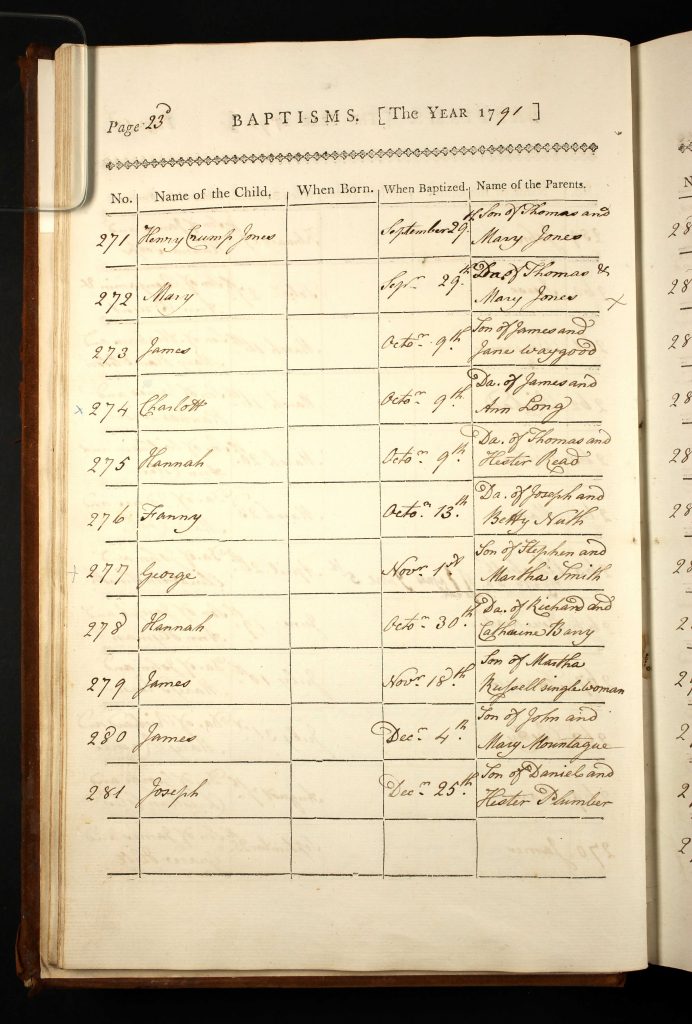 Page 23d BAPTISMS. [The YEAR 1791]
No. Name of the Child. When Born. When Baptized. Name of the Parents.
271 Henry Crump Jones September 29th. Son of Thomas and
Mary Jones
272 Mary Sepr. 29th. Da. of Thomas &
Mary Jones ×
273 James Octor. 9th. Son of James and
Jane Waygood
× 274 Charlott Octor. 9th. Da. of James and
Ann Long
275 Hannah Octor. 9th. Da. of Thomas and
Hester Read
276 Fanny Octor. 13th. Da. of Joseph and
Betty Nash
+ 277 George Novr. 1st. Son of Stephen and
Martha Smith
278 Hannah Octor. 30th. Da. of Richard and
Catharine Barry
279 James Novr. 18th. Son of Martha
Russell single woman
280 James Decr. 4th. Son of John and
Mary Mountague
281 Joseph Decr. 25th. Son of Daniel and
Hester Plumber